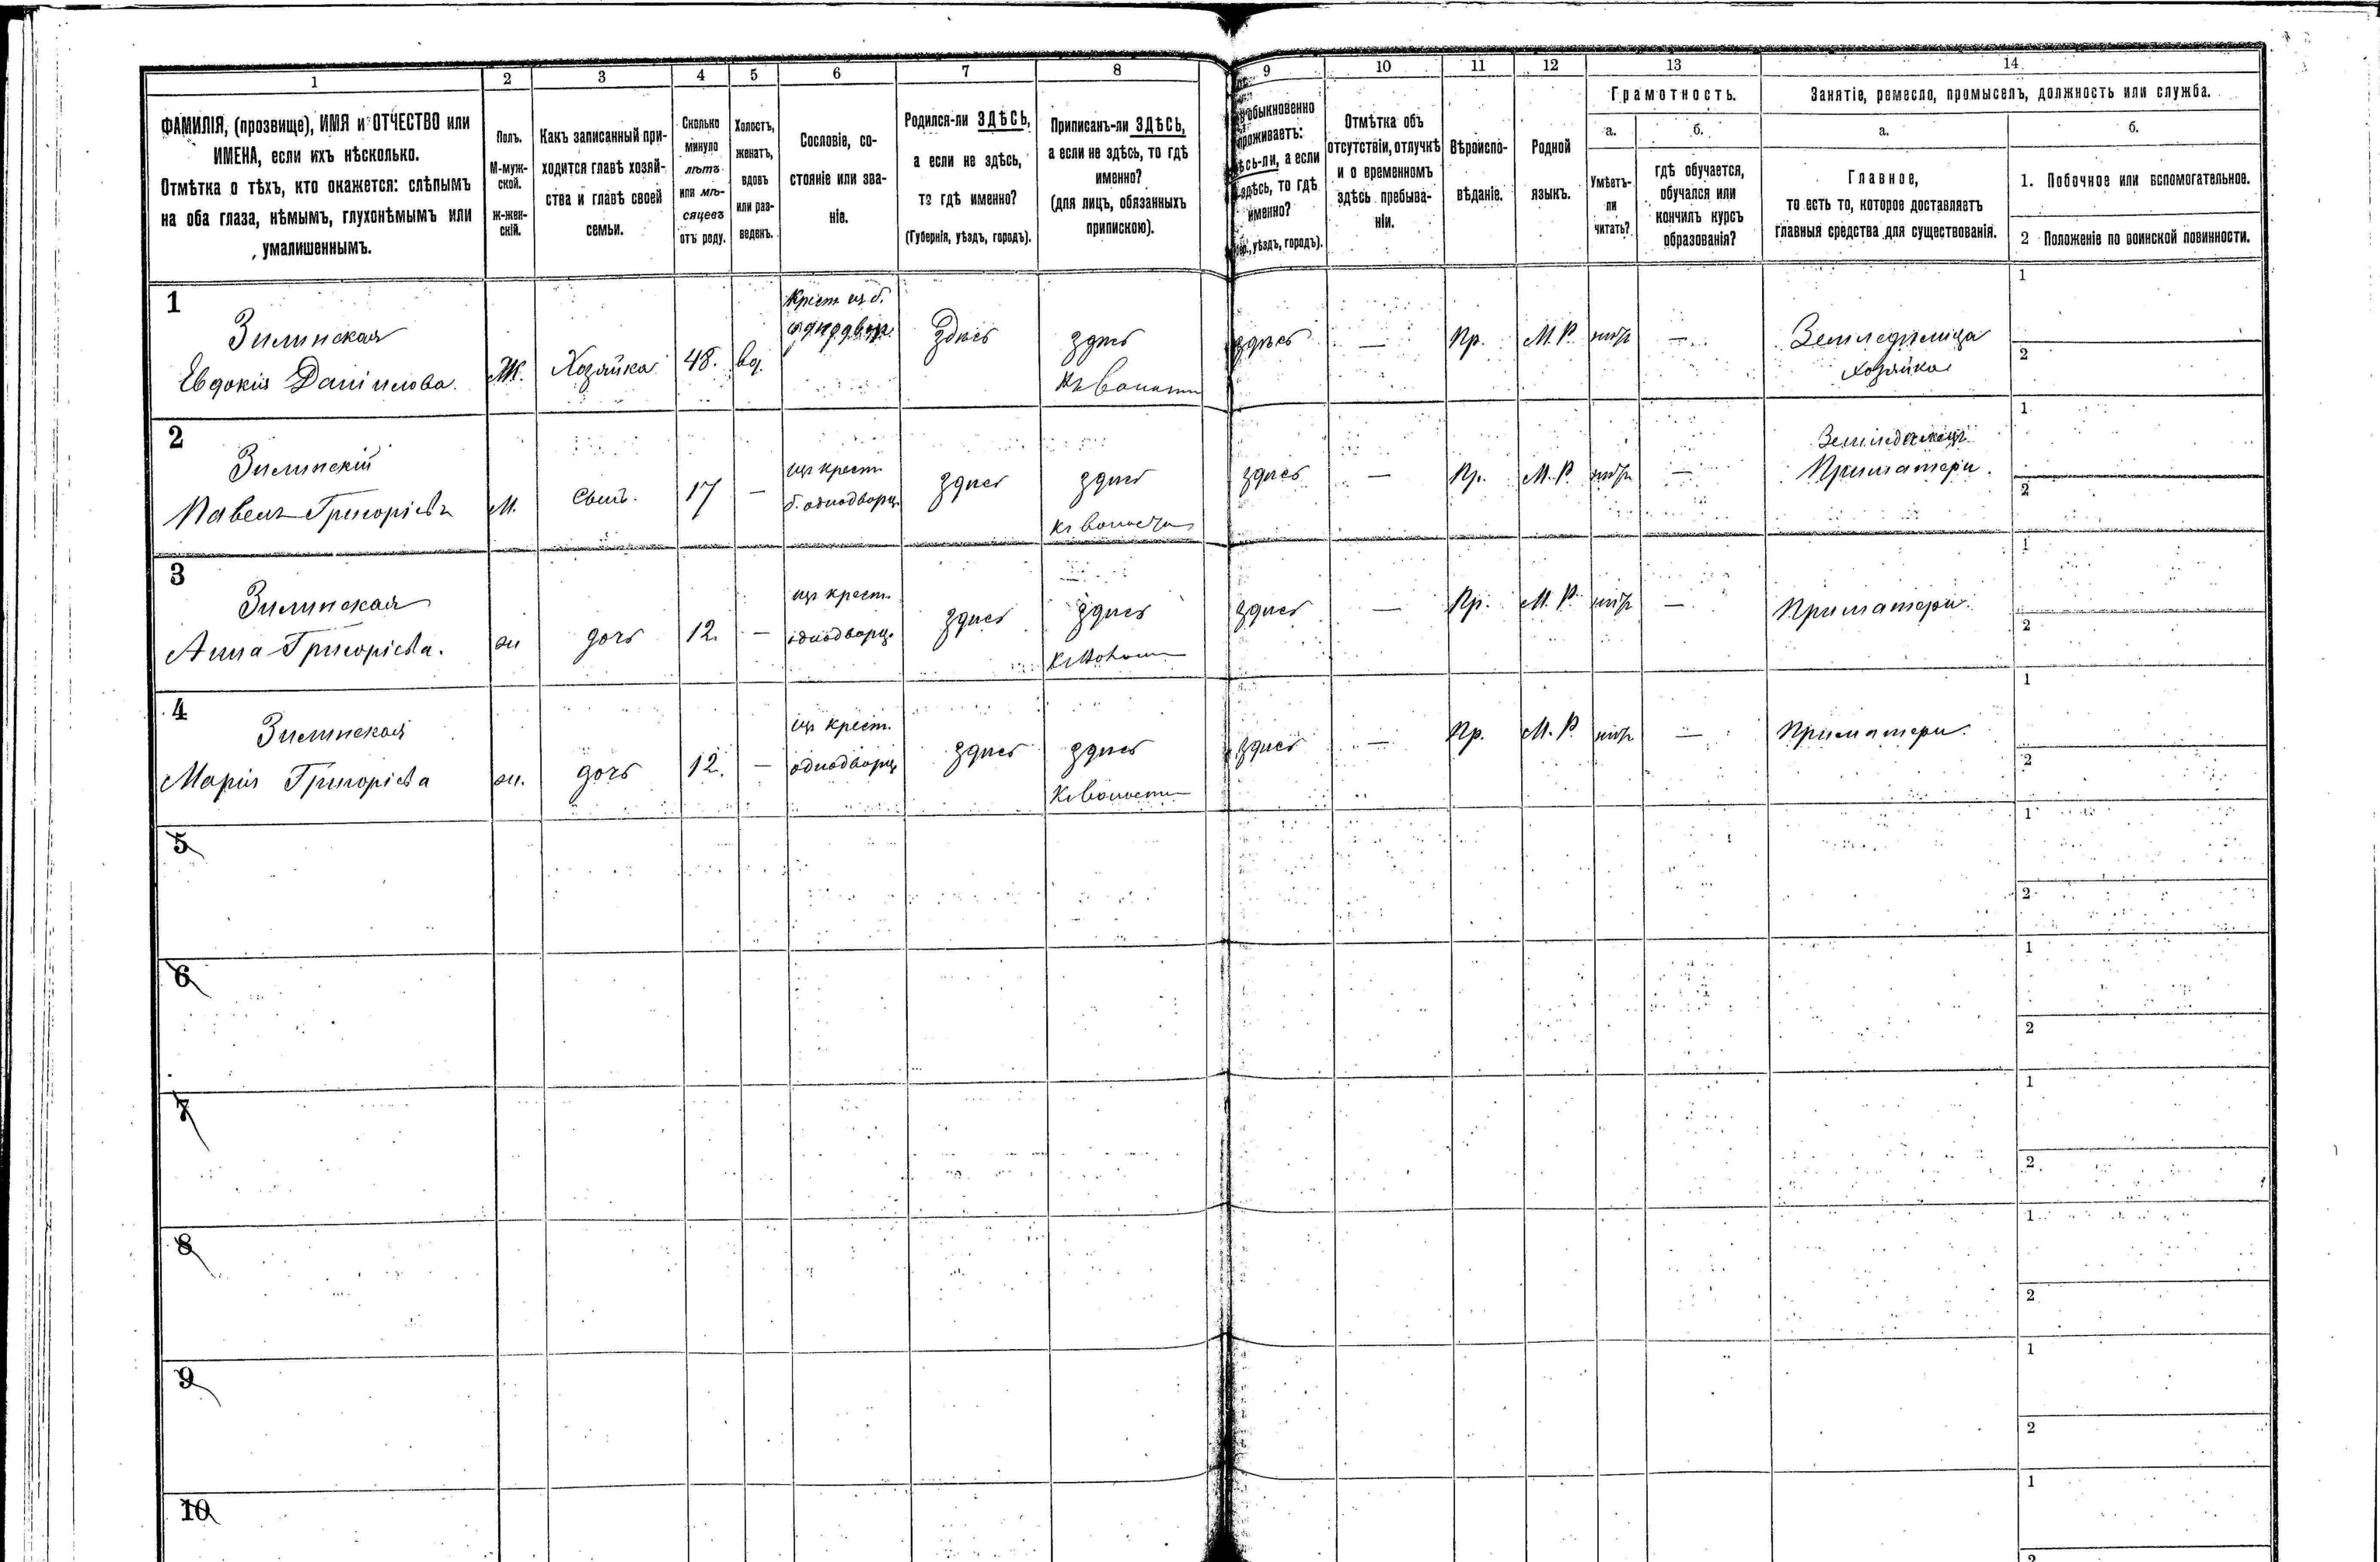 1 2 3 4 5 6 7 8 9 10 11 12 13 14
ФАМИЛІЯ, (прозвище), ИМЯ и ОТЧЕСТВО или
ИМЕНА, если ихъ нѣсколько.
Отмѣтка о тѣхъ, кто окажется: слѣпымъ
на оба глаза, нѣмымъ, глухонѣмымъ или
умалишеннымъ.
Полъ.
М-муж-
ской.
ж-жен-
скій.
Какъ записанный при-
ходится главѣ хозяй-
ства и главѣ своей
семьи.
Сколько
минуло
лѣтъ
или мѣ-
сяцевъ
отъ роду.
Холостъ,
женатъ,
вдовъ
или раз-
веденъ.
Сословіе, со-
стояніе или зва-
ніе.
Родился-ли ЗДѢСЬ,
а если не здѣсь,
то гдѣ именно?
(Губернія, уѣздъ, городъ).
Приписанъ-ли ЗДѢСЬ,
а если не здѣсь, то гдѣ
именно?
(для лицъ, обязанныхъ
припискою).
обыкновенно
проживаетъ:
а если
здѣсь, то гдѣ
именно?
уѣздъ, городъ).
Отмѣтка объ
отсутствіи, отлучкѣ
и о временномъ
здѣсь пребыва-
ніи.
Вѣроиспо-
вѣданіе.
Родной
языкъ.
Грамотность.
а.
Умѣетъ-
ли
читать?
б.
гдѣ обучается,
обучался или
кончилъ курсъ
образованія?
Занятіе, ремесло, промыселъ, должность или служба.
а.
Главное,
то есть то, которое доставляетъ
главныя средства для существованія.
б.
1. Побочное или вспомогательное.
2 Положеніе по воинской повинности.
1
Зилинская
Евдокія Данилова.
Ж.
Хозяйка
48.
вд.
Крест из б.
однодвор.
Здѣсь
здѣсь
къ волости
здѣсь
—
Пр.
М. Р.
нѣтъ
—
Земледѣлица
хозяйка
1
2
2
Зилинскій
Павелъ Григоріевъ
М.
Сынъ.
17
—
изъ крест
б. однодворц.
здѣсь
здѣсь
къ волости
здѣсь
—
Пр.
М. Р.
нѣтъ
—
Земледѣлецъ
При матери.
1
2
3
Зилинская
Анна Григоріева.
ж
дочь
12.
—
изъ крест
однодворц.
здѣсь
здѣсь
къ волости
здѣсь
—
Пр.
М. Р.
нѣтъ
—
При матери.
1
2
4
Зилинская
Марія Григоріева
ж.
дочь
12.
—
изъ крест.
однодворц
здѣсь
здѣсь
къ волости
здѣсь
—
Пр.
М. Р.
нѣтъ
—
При матери.
1
2
5
1
2
6
1
2
7
1
2
8
1
2
9
1
2
10
1
2